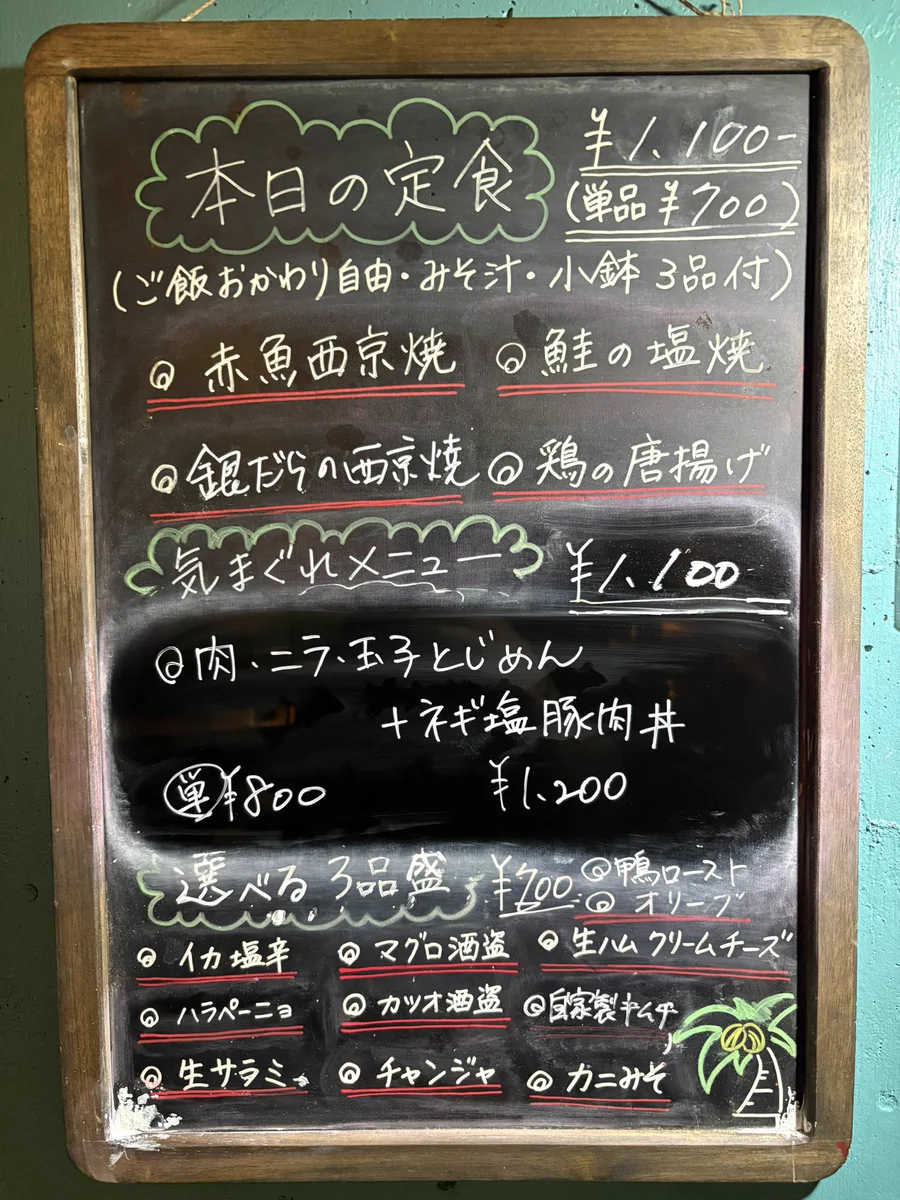 本日の定食 ¥1,100-
(単品 ¥700)
(ご飯おかわり自由・みそ汁・小鉢 3品付)
◎ 赤魚西京焼 ◎ 鮭の塩焼
◎ 銀だらの西京焼 ◎ 鶏の唐揚げ
気まぐれメニュー ¥1,100
◎肉・ニラ・玉子とじめん
+ネギ塩豚肉丼
単 ¥800 ¥1,200
選べる 3品盛 ¥700 ◎鴨ロースト
◎ オリーブ
◎ イカ塩辛 ◎ マグロ酒盗 ◎ 生ハムクリームチーズ
◎ ハラペーニョ ◎ カツオ酒盗 ◎自家製キムチ
◎ 生サラミ ◎ チャンジャ ◎ カニみそ